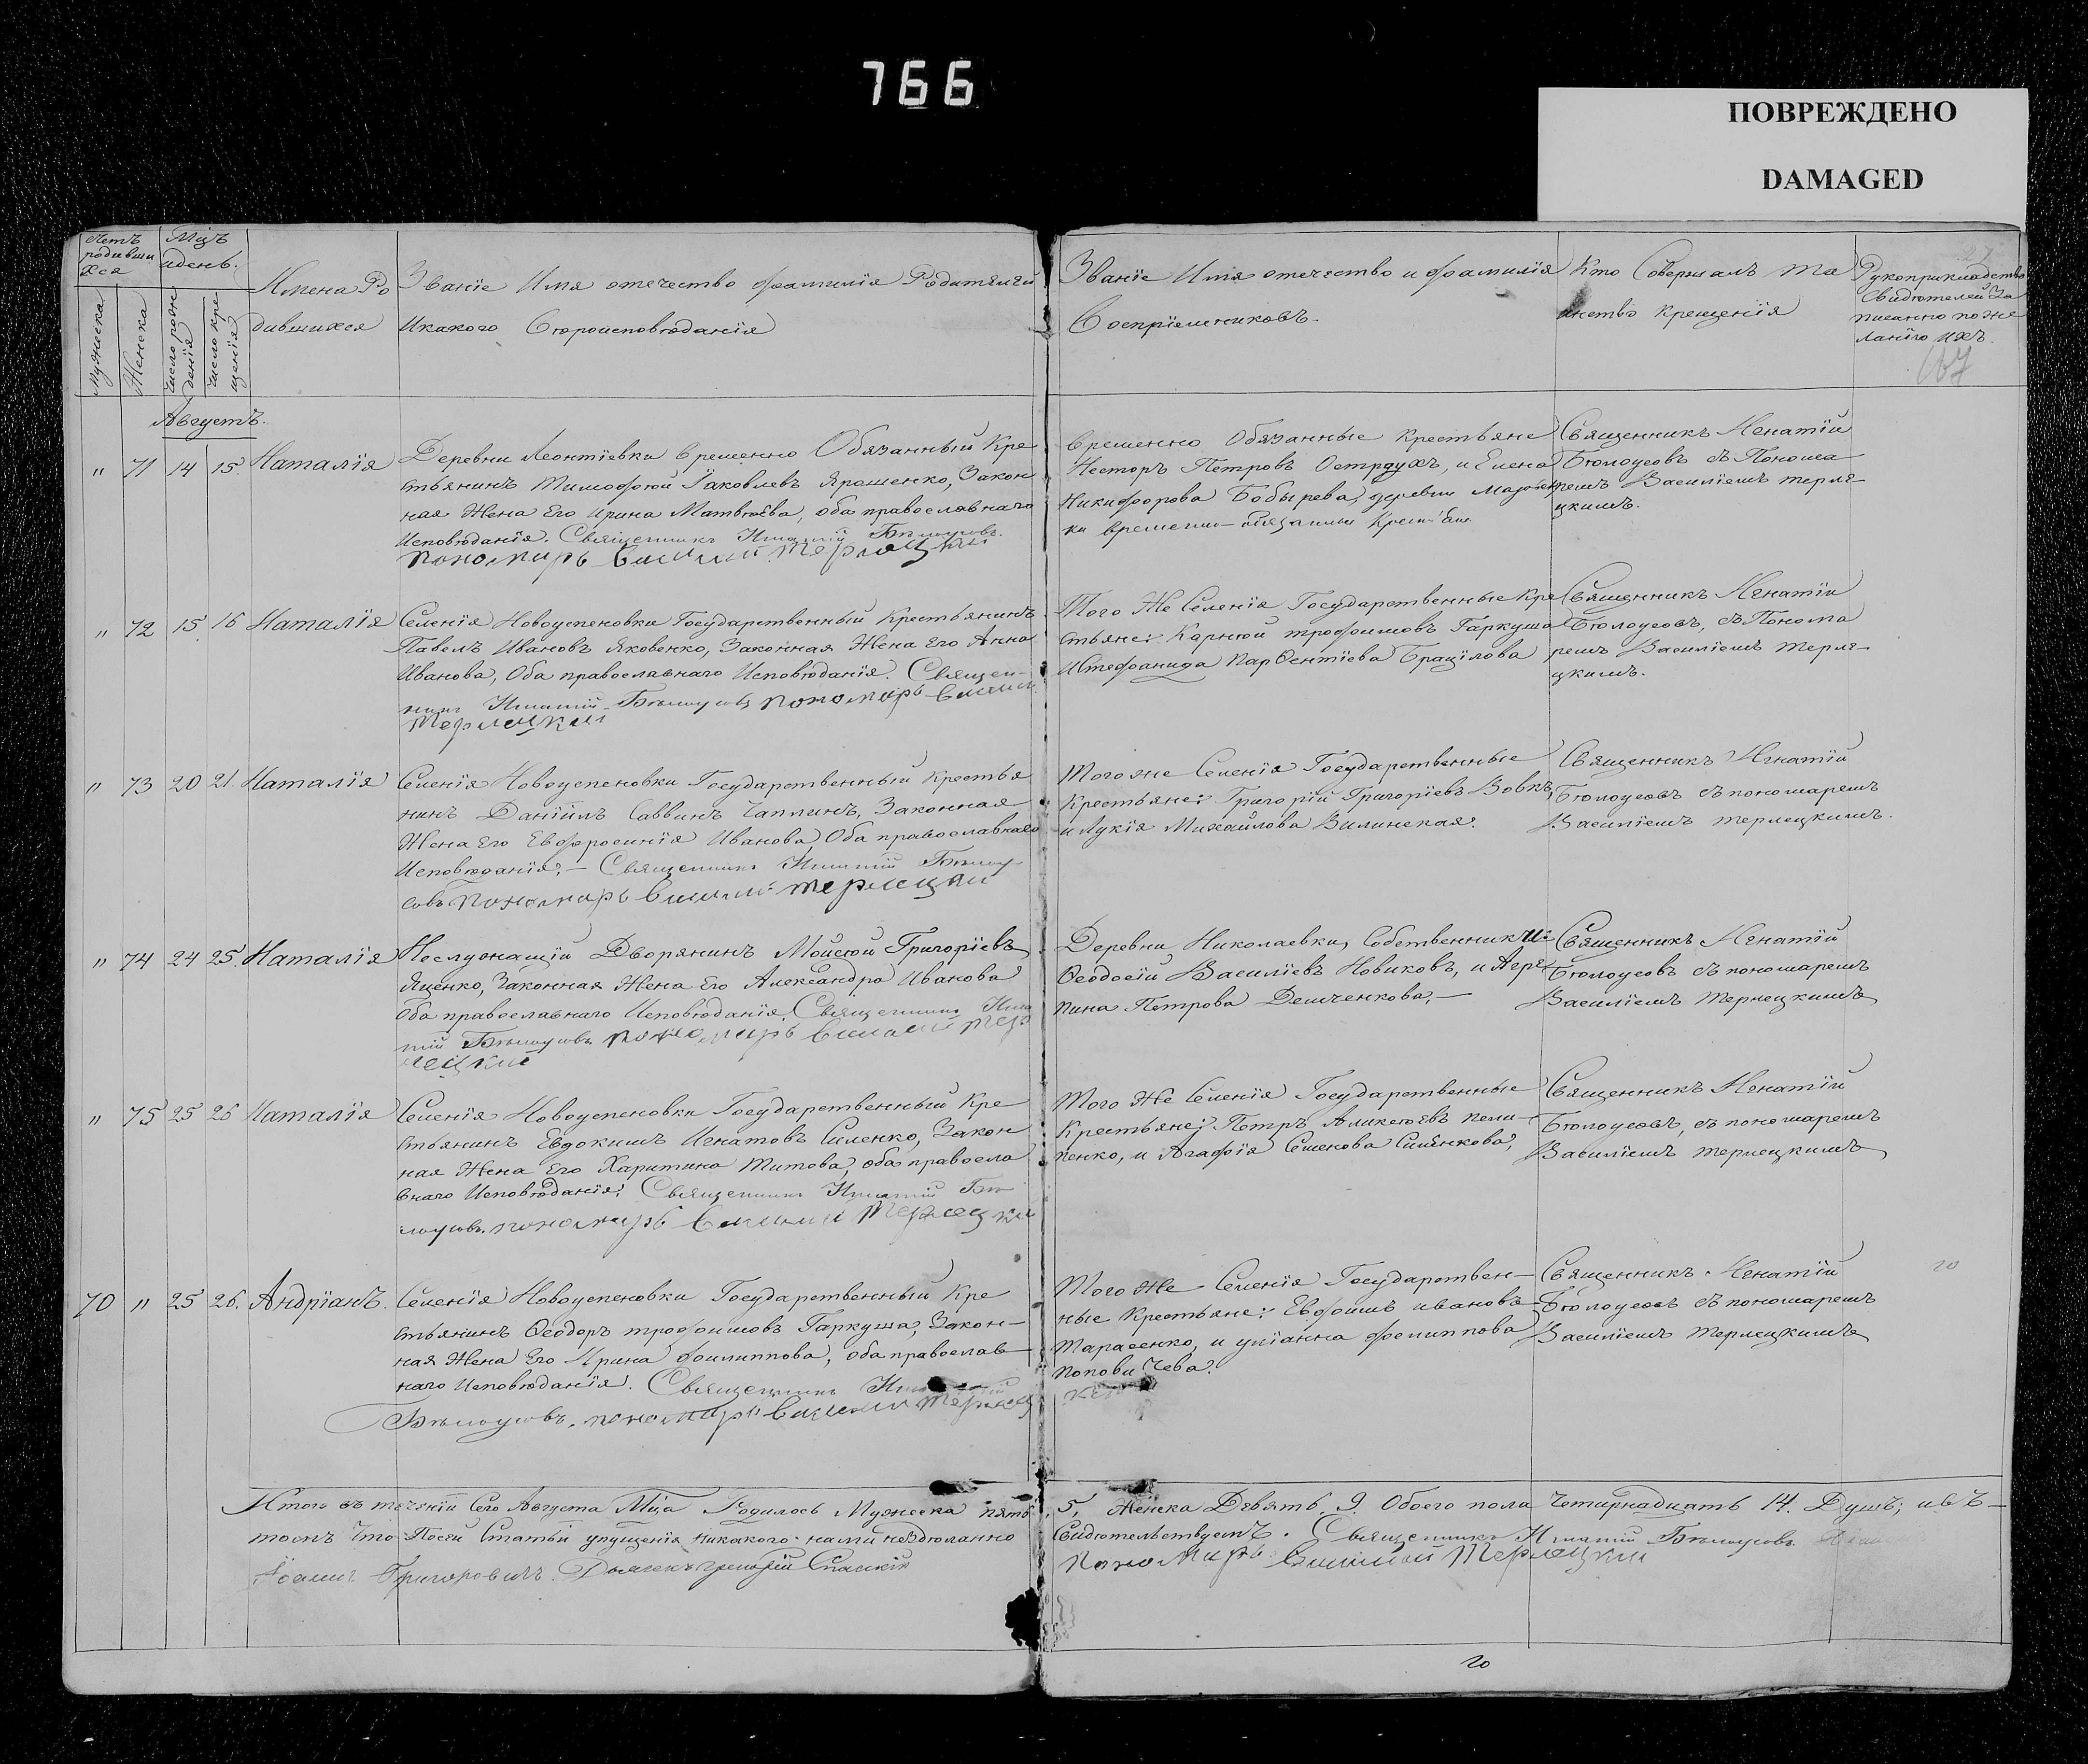 766
ПОВРЕЖДЕНО
DAMAGED
Счетъ родивши хся
Мцъ идень.
Мужеска
Женска
Число рожденія
Число крещенія
Имена Ро
дившихся
Званіе Имя отечество фамилія Родителей
Икакого Вѣроисповѣданія
Званіе Имя отечество и фамилія
Воспріемниковъ.
Кто Совершалъ Та
инство Крещенія
Рукоприкладство
Свидѣтелей За
писанно по же
ланію ихъ.
167
Августъ.
" 71 14 15 Наталія
Деревни Леонтіевки Временно Обязанный Кре
стьянинъ Тимофѣй Іаковлевъ Ярошенко, Закон
ная Жена Его Ирина Матвѣева, оба православнаго
Исповѣданія. Священникъ Игнатій Бѣлоусовъ.
пономарь Василій Терлецкій
Временно Обязанные Крестьяне
Несторъ Петровъ Остроухъ, и Елена
Никифорова Бобырева, деревни
ки временно-обязанные
Священникъ Игнатій
Бѣлоусовъ съ Понома
ремъ Василіемъ терле
цкимъ.
" 72 15 16 Наталія
Селенія Новоуспеновки Государственный Крестьянинъ
Павелъ Ивановъ Яковенко, Законная Жена Его Анна
Иванова, Оба православнаго Исповѣданія. Священ-
никъ Игнатій Бѣлоусовъ пономарь Василій
Терлецкій
Того Же Селенія Государственные Кре
стьяне: Карнѣй трофимовъ Гаркуша
иСтефанида Парѳентіева Брацілова
Священникъ Игнатій
Бѣлоусовъ, съ Понома
ремъ Василіемъ Терле-
цкимъ.
" 73 20 21 Наталія
Селенія Новоуспеновки Государственный Крестья
нинъ Даніилъ Саввинъ Чаплинъ, Законная
Жена Его Евфросинія Иванова, Оба православнаго
Исповѣданія; – Священникъ Игнатій Бѣлоу
совъ пономарь Василій терлецкій
Того же Селенія Государственные
Крестьяне: Григорій Григоріевъ Вовкъ,
и Лукія Михайлова Вилинская.
Священникъ Игнатій
Бѣлоусовъ съ пономаремъ
Василіемъ терлецкимъ.
" 74 24 25. Наталія
Неслужащій Дворянинъ Мойсѣй Григоріевъ
Яценко, Законная Жена Его Александра Иванова
Оба православнаго Исповѣданія, Священникъ Игна
тій Бѣлоусовъ пономарь Василій тер
лецкій
Деревни Николаевки, Собственники:
Ѳеодосій Василіевъ Новиковъ, и Агре
пина Петрова Демченкова, –
Священникъ Игнатій
Бѣлоусовъ съ пономаремъ
Василіемъ терлецкимъ
" 75 25 26 Наталія
Селенія Новоуспеновки Государственный Кре
стьянинъ Евдокимъ Игнатовъ Силенко, Закон
ная Жена Его Харитина Титова, оба правосла
внаго Исповѣданія; Священникъ Игнатій Бѣ
лоусовъ. пономарь Василій терлецкій
Того Же Селенія Государственные
Крестьяне; Петръ Аликсѣевъ Пели-
пенко, и Агафія Семенова Силенкова,
Священникъ Игнатій
Бѣлоусовъ, съ пономаремъ
Василіемъ терлецкимъ
70 " 25 26. Андріанъ.
Селенія Новоуспеновки Государственный Кре
стьянинъ Ѳеодоръ трофимовъ Гаркуша, Закон-
ная Жена Его Ирина Филиппова, оба православ-
наго Исповѣданія. Священникъ
Бѣлоусовъ. пономарь Василій терлец
Того Же Селенія Государствен-
ные Крестьяне: Ефимъ ивановъ
тарасенко, и уліанна филиппова
Поповичева.
Священникъ Игнатій
Бѣлоусовъ съ пономаремъ
Василіемъ терлецкимъ
20
Итого въ теченіи Сего Августа Мца Родилось Мужеска пять 5, Женска Девять 9 Обоего пола Четырнадцать 14. Душъ; ивъ-
томъ Что Посей Статьи упущенія никакого нами нездѣланно Свидѣтельствуемъ. Священникъ Игнатій Бѣлоусовъ
Іоаннъ Григоровичъ. Дьячекъ Спаскій пономарь Василій Терлецкій
20